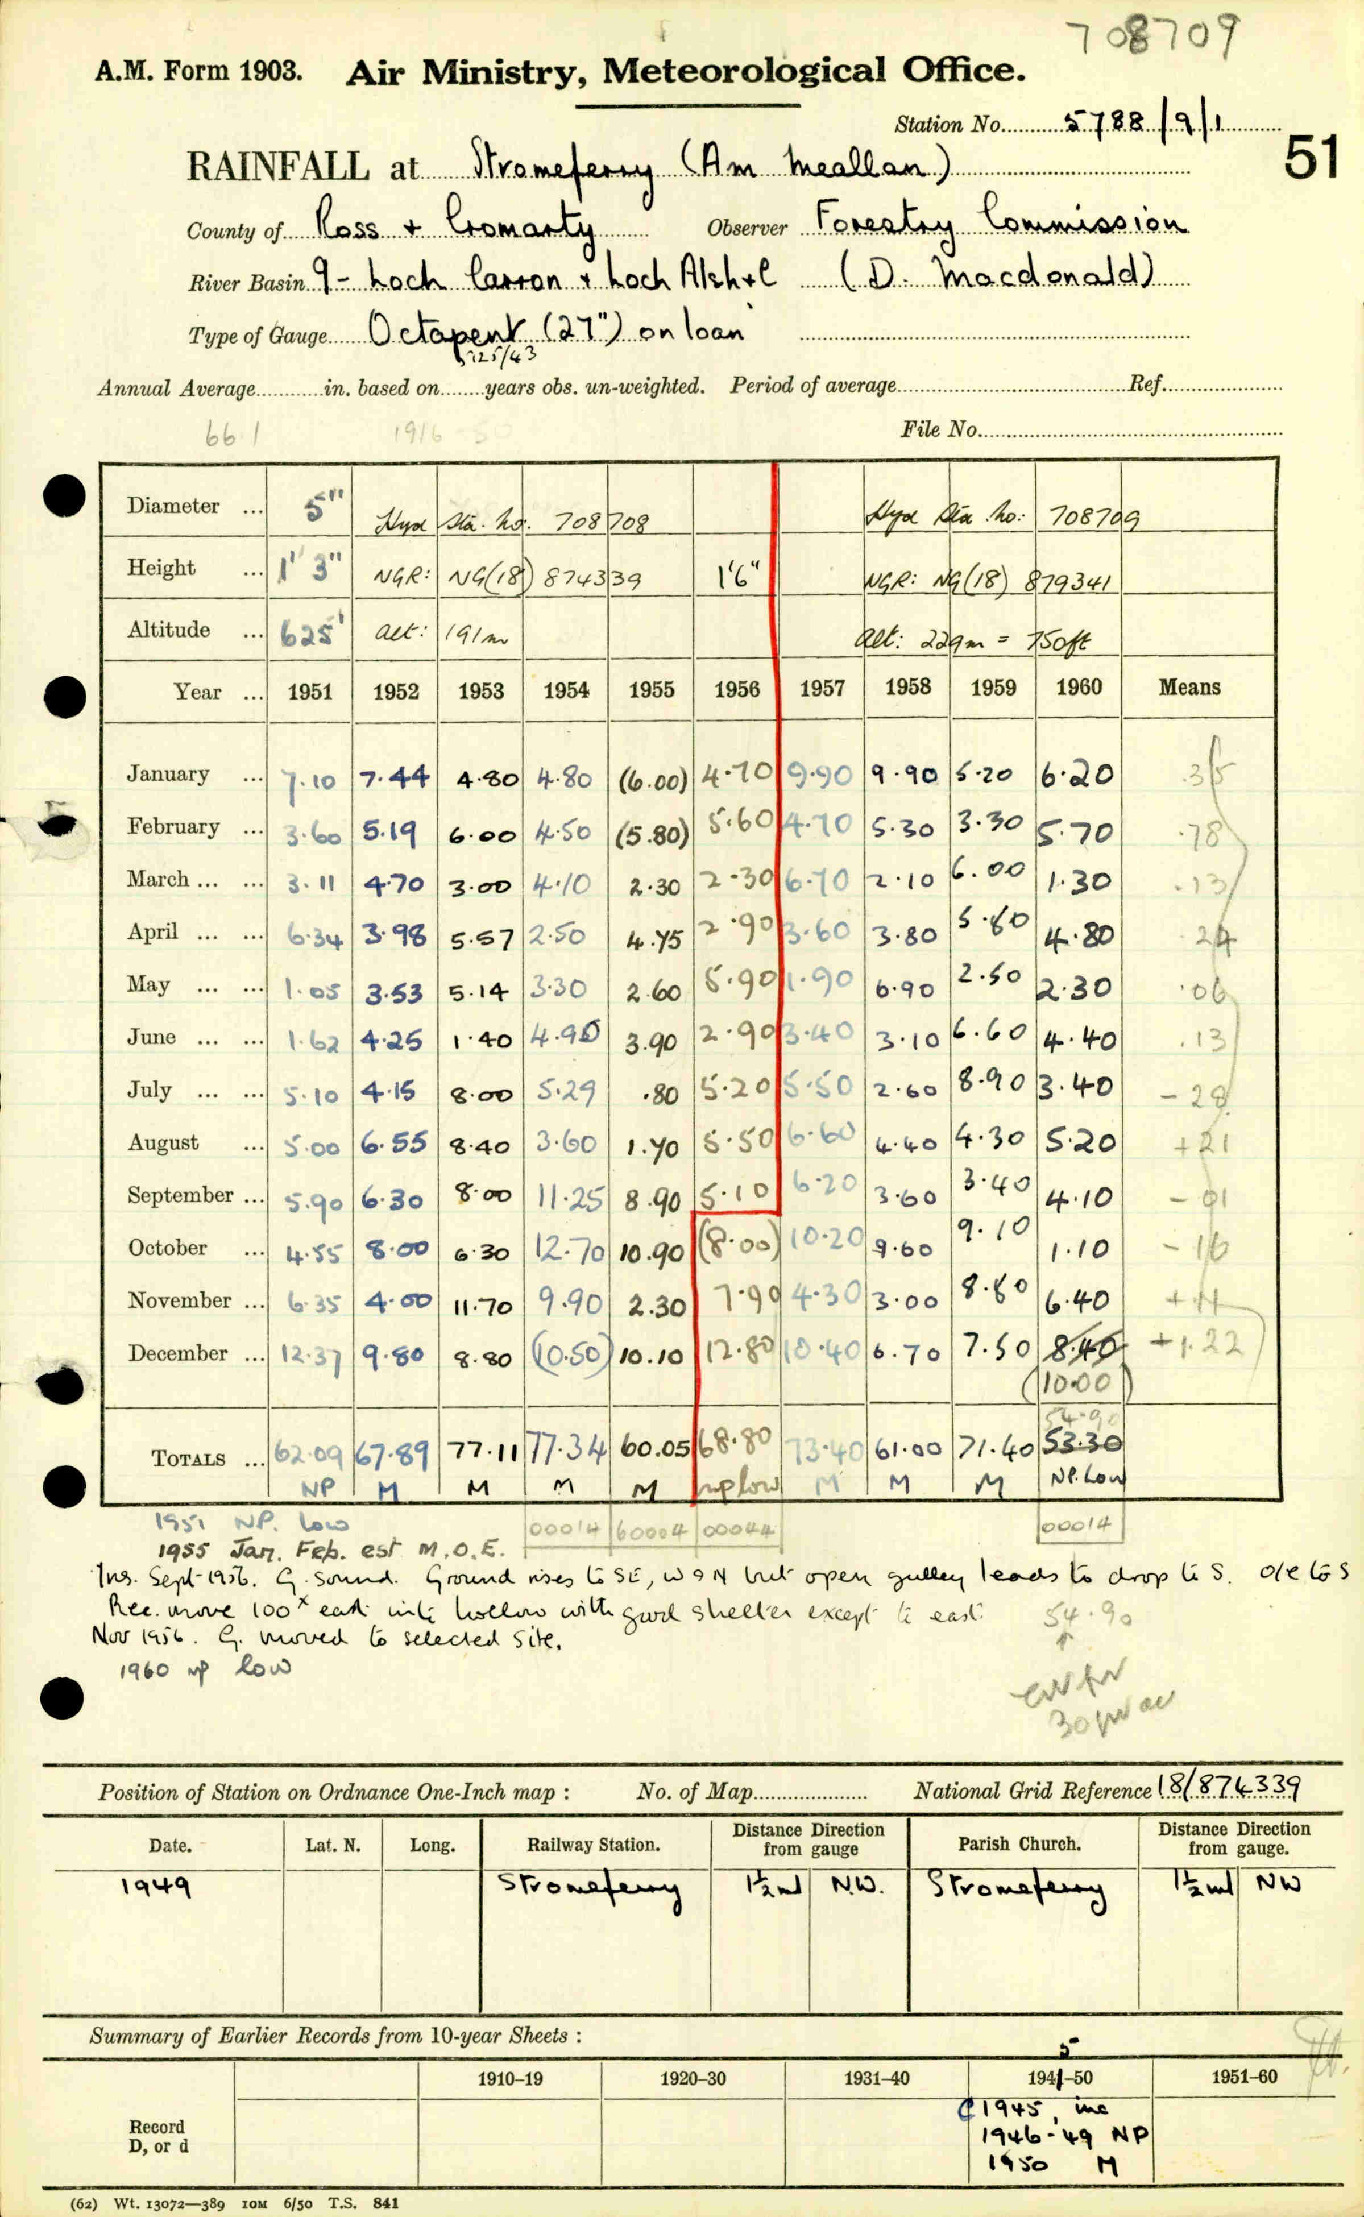 708709
A.M. Form 1903. Air Ministry, Meteorological Office.
Station No. 5788/9/1
51
RAINFALL at Stromeferry (Am Meallan)
County of Ross + Cromarty Observer Forestry Commission
River Basin 9 - Loch Carron + Loch Alsh+C (D. Macdonald)
Type of Gauge Octapent (27") on loan
5725/43
Annual Average in. based on years obs. un-weighted. Period of average Ref.
66.1 1916-50
File No.
Diameter ... 5" Hyd Sta. No. 708708 Hyd Sta. No: 708709
Height ... 1' 3" NGR: NG(18) 874339 1'6" NGR: NG(18) 879341
Altitude ... 625' alt: 191m alt: 229m = 750ft
Year ... 1951 1952 1953 1954 1955 1956 1957 1958 1959 1960 Means
January ... 7.10 7.44 4.80 4.80 (6.00) 4.70 9.90 9.90 5.20 6.20 .35
February ... 3.60 5.19 6.00 4.50 (5.80) 5.60 4.70 5.30 3.30 5.70 .78
March ... ... 3.11 4.70 3.00 4.10 2.30 2.30 6.70 2.10 6.00 1.30 .13
April ... ... 6.34 3.98 5.57 2.50 4.75 2.90 3.60 3.80 5.80 4.80 .24
May ... ... 1.05 3.53 5.14 3.30 2.60 5.90 1.90 6.90 2.50 2.30 .06
June ... ... 1.62 4.25 1.40 4.90 3.90 2.90 3.40 3.10 6.60 4.40 .13
July ... ... 5.10 4.15 8.00 5.29 .80 5.20 5.50 2.60 8.90 3.40 - 28
August ... 5.00 6.55 8.40 3.60 1.70 5.50 6.60 4.40 4.30 5.20 + 21
September ... 5.90 6.30 8.00 11.25 8.90 5.10 6.20 3.60 3.40 4.10 - 01
October ... 4.55 8.00 6.30 12.70 10.90 (8.00) 10.20 9.60 9.10 1.10 - 16
November ... 6.35 4.00 11.70 9.90 2.30 7.90 4.30 3.00 8.80 6.40 + 11
December ... 12.37 9.80 8.80 (10.50) 10.10 12.80 10.40 6.70 7.50 8.40 + 1.22
(10.00)
54.90
TOTALS ... 62.09 67.89 77.11 77.34 60.05 68.80 73.40 61.00 71.40 53.30
NP M M M M np low M M M NP. Low
1951 NP. low 00014 60004 00044 00014
1955 Jan. Feb. est M.O.E.
Ins. Sept 1956. G. sound. Ground rises to SE, W & N but open gulley leads to drop to S. o/e to S
Rec. move 100ˣ east into hollow with good shelter except to east
54.90
Nov 1956. G. moved to selected site.
1960 np low
30 yr av
Position of Station on Ordnance One-Inch map : No. of Map National Grid Reference 18/874339
Date. Lat. N. Long. Railway Station. Distance from gauge Direction Parish Church. Distance from gauge. Direction
1949 Stromeferry 1½ ml N.W. Stromeferry 1½ ml NW
Summary of Earlier Records from 10-year Sheets :
5
1910–19 1920–30 1931–40 1941–50 1951–60
Record
D, or d
1945, inc
1946-'49 NP
1950 M
(62) Wt. 13072—389 10M 6/50 T.S. 841